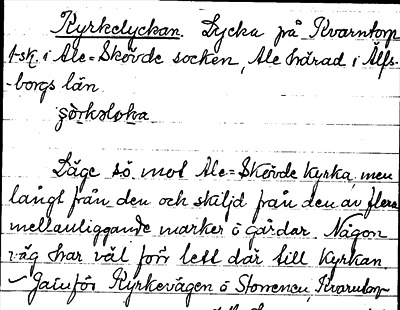 Kyrkelyckan. Lycka på Kvarntorp
1 sk. i Ale=Skövde socken, Ale härad i Älfs-
-borgs län.
Läge sö. mot Ale=Skövde kyrka, men
långt från den och skiljd från den av flera
mellanliggande marker o gårdar. Någon
väg har väl förr lett där till kyrkan.
Jämför Kyrkevägen o Storrencu, Kvarntorp